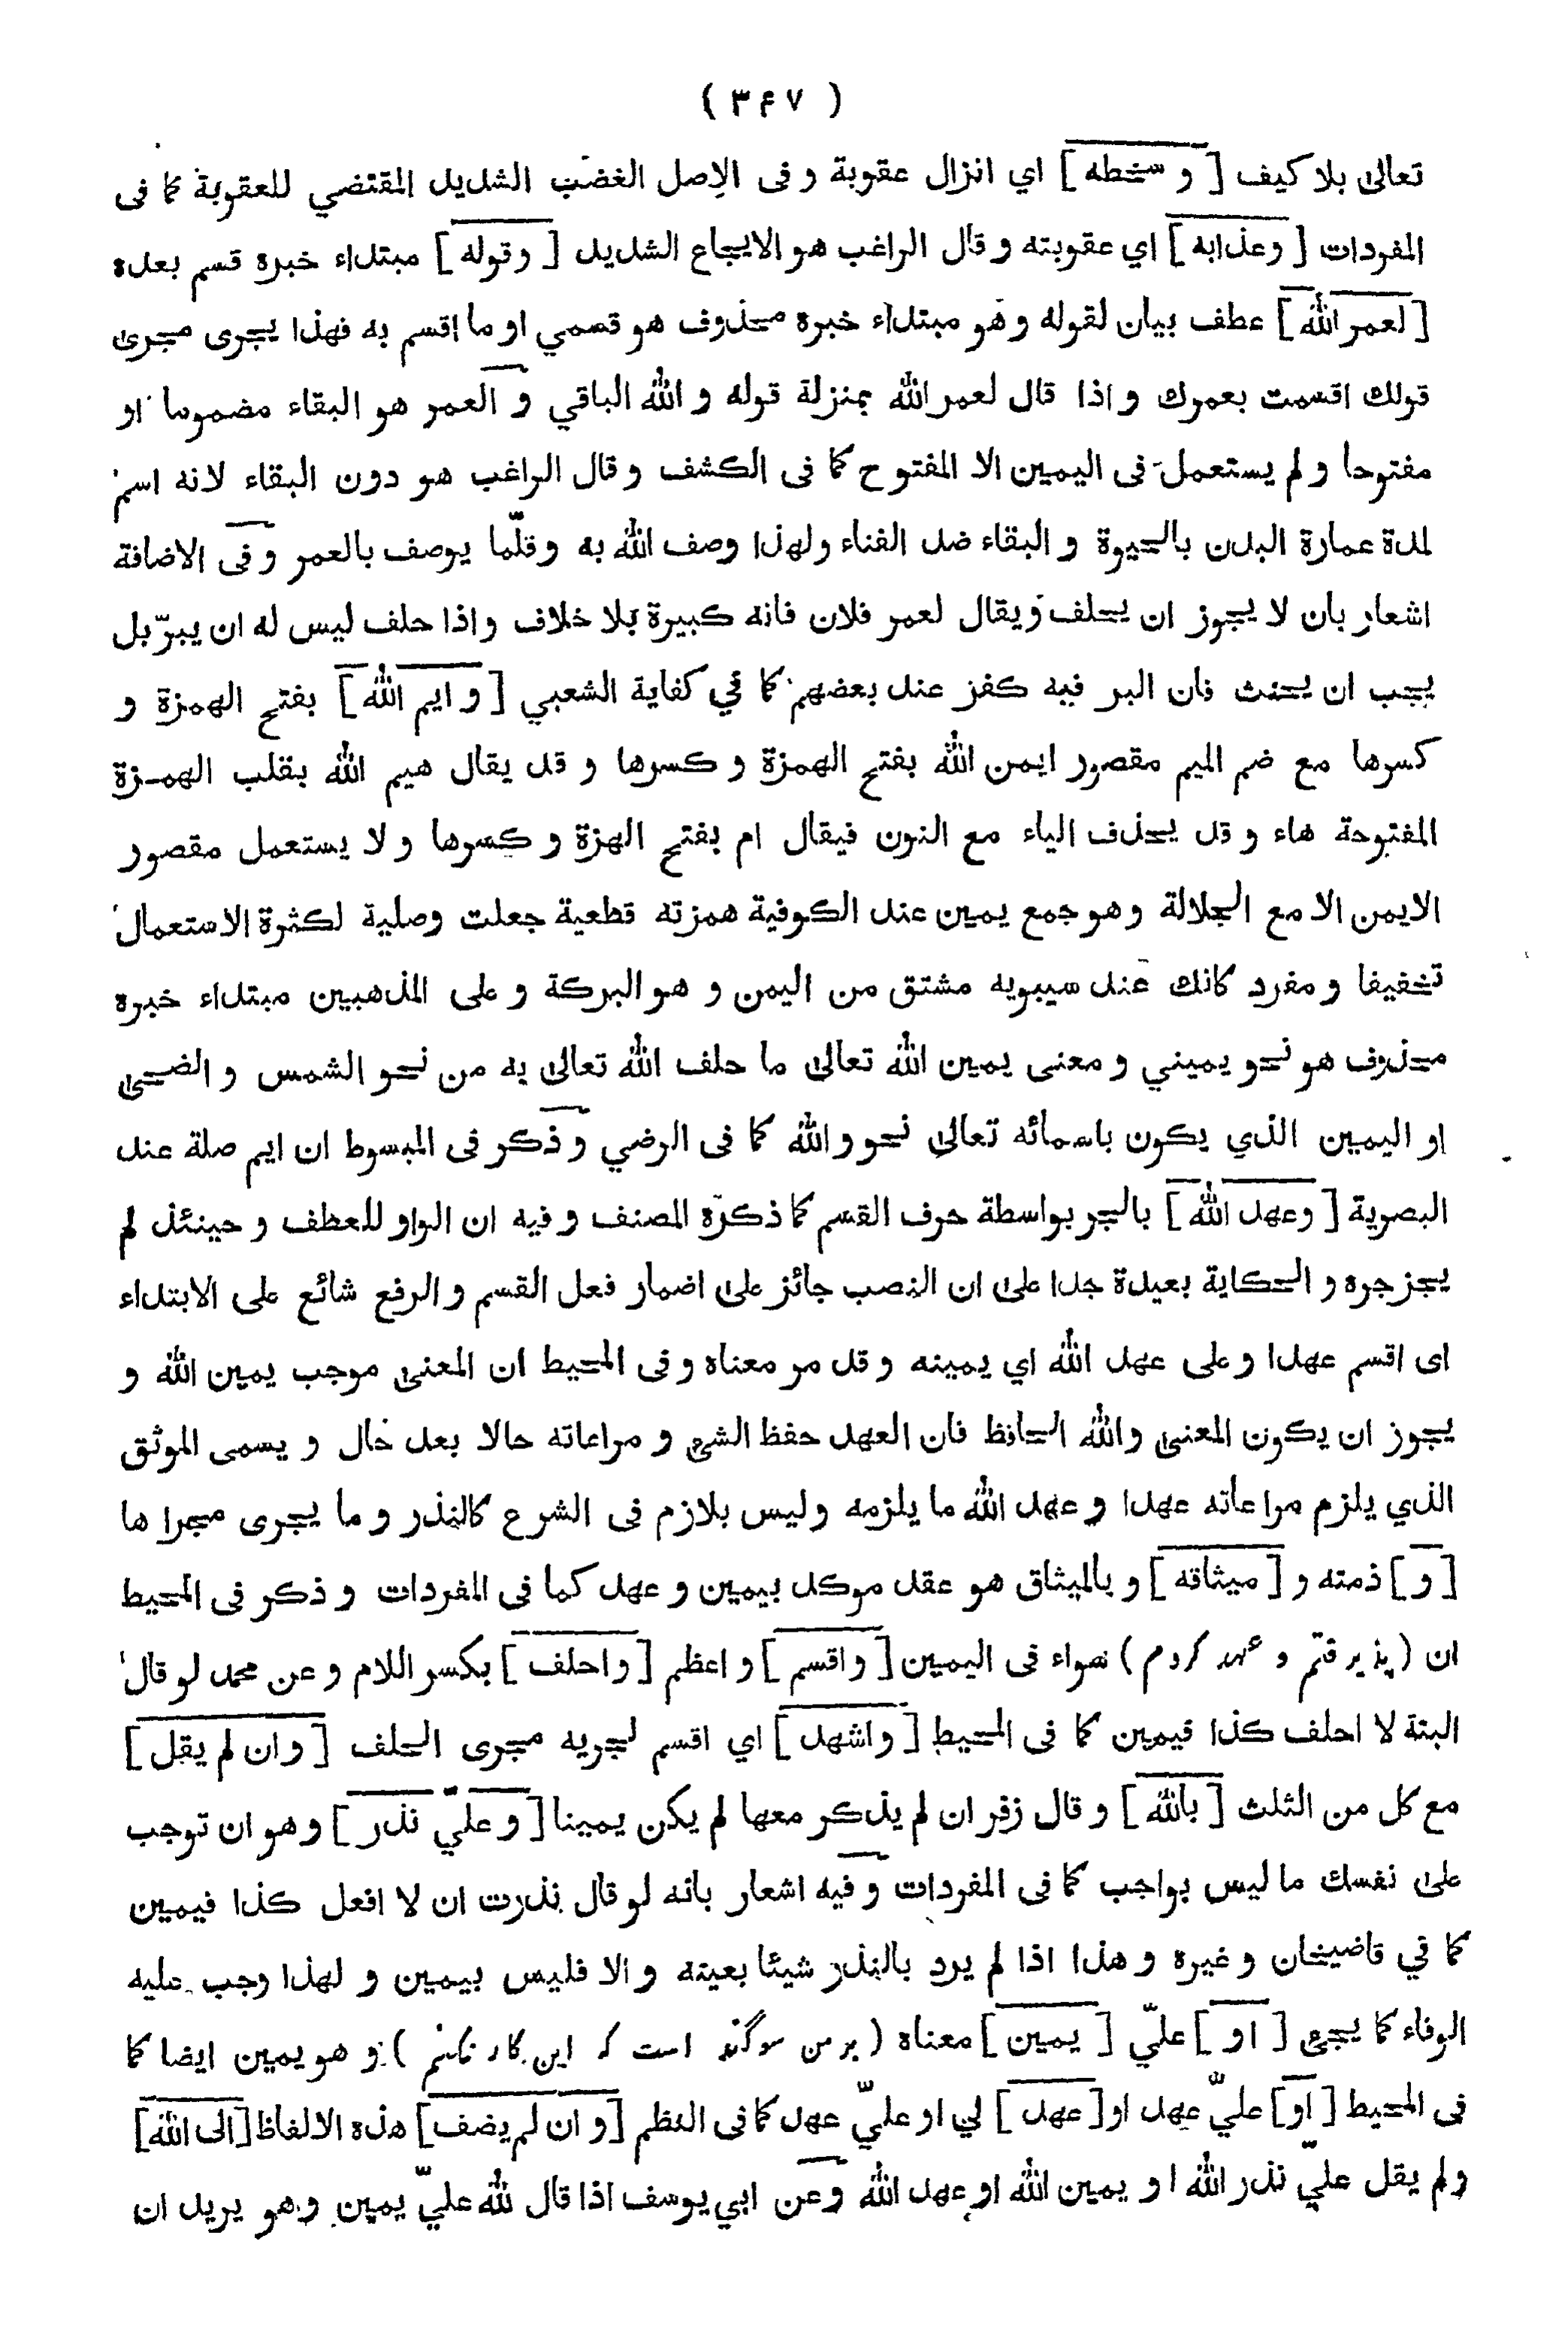 ( ۳۶۷ )
تعالى بلا كيف [ و سخطه ] اي انزال عقوبة و فى الاصل الغضب الشديد المقتضي للعقوبة كما فى
المفردات [ وعذابه ] اي عقوبته و قال الراغب هو الايجاع الشديد [ وقوله ] مبتداء خبره قسم بعده
[ لعمر الله ] عطف بيان لقوله و هو مبتداء خبره محذوف هو قسمي او ما اقسم به فهذا يجرى مجرى
قولك اقسمت بعمرك و اذا قال لعمر الله بمنزلة قوله و الله الباقي و العمر هو البقاء مضموما او
مفتوحا و لم يستعمل فى اليمين الا المفتوح كما فى الكشف و قال الراغب هو دون البقاء لانه اسم
لمدة عمارة البدن بالحيوة و البقاء ضد الفناء ولهذا وصف الله به و قلّما يوصف بالعمر و فى الاضافة
اشعار بان لا يجوز ان يحلف ويقال لعمر فلان فانه كبيرة بلا خلاف و اذا حلف ليس له ان يبرّ بل
يجب ان يحنث فان البر فيه كفر عند بعضهم كما في كفاية الشعبي [ و ايم الله ] بفتح الهمزة و
كسرها مع ضم الميم مقصور ايمن الله بفتح الهمزة و كسرها و قد يقال هيم الله بقلب الهمزة
المفتوحة هاء و قد يحذف الياء مع النون فيقال ام بفتح الهزة و كسرها و لا يستعمل مقصور
الايمن الا مع الجلالة و هو جمع يمين عند الكوفية همزته قطعية جعلت وصلية لكثرة الاستعمال
تخفيفا و مفرد كانك عند سيبويه مشتق من اليمن و هو البركة و على المذهبين مبتداء خبره
محذوف هو نحو يميني و معنى يمين الله تعالى ما حلف الله تعالى به من نحو الشمس و الضحى
او اليمين الذي يكون باسمائه تعالى نحو و الله كما فى الرضي و ذكر فى المبسوط ان ايم صلة عند
البصرية [ وعهد الله ] بالجر بواسطة حرف القسم كما ذكره المصنف و فيه ان الواو للعطف و حينئذ لم
يجز جره و الحكاية بعيدة جدا على ان النصب جائز على اضمار فعل القسم و الرفع شائع على الابتداء
اى اقسم عهدا و على عهد الله اي يمينه و قد مر معناه و فى المحيط ان المعنى موجب يمين الله و
يجوز ان يكون المعنى والله الحافظ فان العهد حفظ الشئ و مراعاته حالا بعد حال و يسمى الموثق
الذي يلزم مراعاته عهدا و عهد الله ما يلزمه وليس بلازم فى الشرع كالنذر و ما يجرى مجرا ها
[ و ] ذمته و [ ميثاقه ] و بالميثاق هو عقد موكد بيمين و عهد كما فى المفردات و ذكر فى المحيط
ان ( پذيرفتم و عهد كردم ) سواء فى اليمين [ و اقسم ] و اعظم [ و احلف ] بكسر اللام و عن محمد لو قال
البتة لا احلف كذا فيمين كما فى المحيط [ و اشهد ] اي اقسم لجريه مجرى الحلف [ و ان لم يقل ]
مع كل من الثلث [ بالله ] و قال زفر ان لم يذكر معها لم يكن يمينا [ و عليّ نذر ] و هو ان توجب
على نفسك ما ليس بواجب كما فى المفردات و فيه اشعار بانه لو قال نذرت ان لا افعل كذا فيمين
كما في قاضيخان و غيره و هذا اذا لم يرد بالنذر شيئا بعينه و الا فليس بيمين و لهذا وجب عليه
الوفاء كما يجئ [ او ] عليّ [ يمين ] معناه ( بر من سوگند است كه اين كار نكنم ) و هو يمين ايضا كما
فى المحيط [ او ] عليّ عهد او [ عهد ] لي او عليّ عهد كما فى النظم [ و ان لم يضف ] هذه الالفاظ [ الى الله ]
ولم يقل عليّ نذر الله ا و يمين الله او عهد الله وعن ابي يوسف اذا قال لله عليّ يمين وهو يريد ان